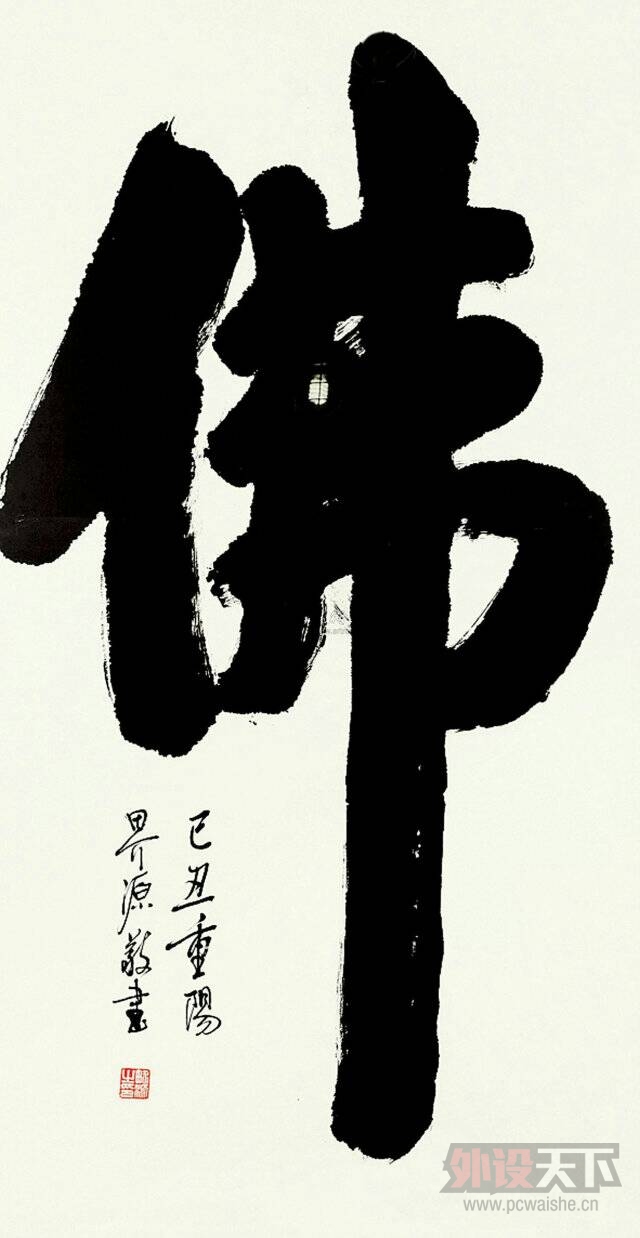 佛
己丑重陽
界源敬書
外设天下
www.pcwaishe.cn